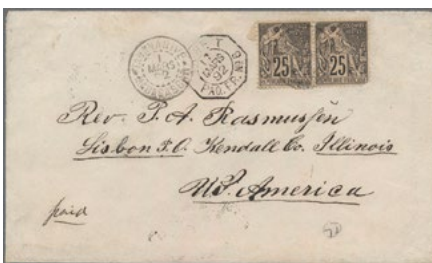 MARS
92
PAQ. FR. Nº6
25
25
Rev. P. A. Rasmussen
Lisbon P.O. Kendall Co. Illinois
U.S. America
paid